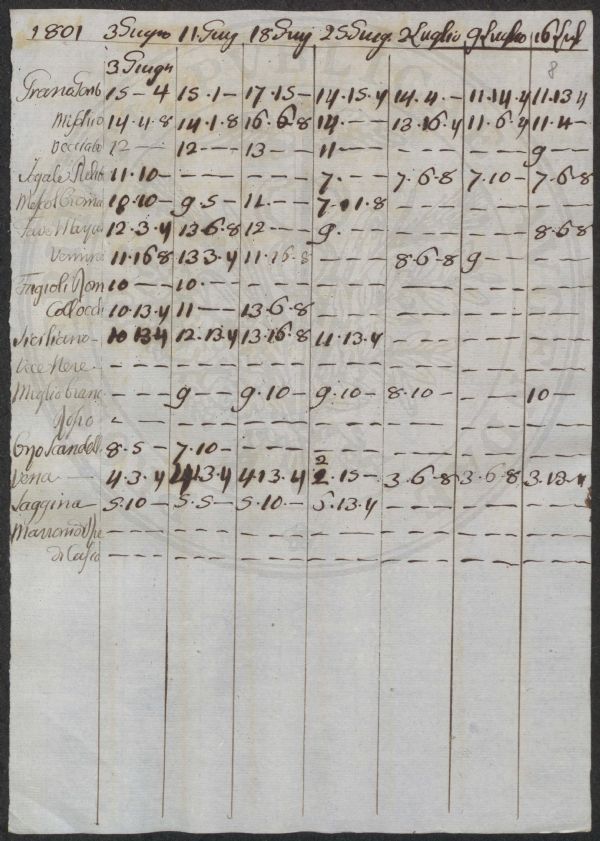 1801 3 Giugno 11. Giug 18 Giug 25 Giug. 2 Luglio 9 Luglio 16 Lul
3 Giugn 8
15 — 4 15. 1 — 17. 15 — 14. 15. 4 14. 4. — 11. 14. 4 11. 13 4
Mischio 14. 4. 8 14. 1. 8 16. 6. 8 14. — 13. 16. 4 11. 6. 4 11. 4 —
Vecciato 12 — 12 — 13 — 11 — — — — — — — 9 —
Segale 11. 10 — — — — — — — 7. — 7. 6. 8 7. 10 — 7. 6. 8
10 — 9. 5 — 11. — 7. 11. 8 — — — — — — — — —
Fave 12. 3. 4 13. 6. 8 12 — 9. — — — — — — — 8. 6. 8
Vernine 11. 16 8 13 3. 4 11. 16. 8 — — — 8. 6. 8 9 — — — —
Fagioli 10 — 10. — — — — — — — — — — — — — — — —
10. 13. 4 11 — 13. 6. 8 — — — — — — — — — — — —
Siciliano 10 13 4 12. 13. 4 13. 16. 8 11. 13. 4 — — — — — — — — —
Vece Nere — — — — — — — — — — — — — — — — — — — — —
Miglio — — — 9 — 9. 10 — 9. 10 — 8. 10 — — — — 10 —
— — — — — — — — — — — — — — — — — — — — —
Orzo Scandella 8. 5 — 7. 10 — — — — — — — — — — — — — — — —
Vena 4. 3. 4 4. 13. 4 4. 13. 4 2. 15 — 3. 6. 8 3. 6. 8 3. 13. 4
Saggina 5. 10 — 5. 5 — 5. 10 — 5. 13. 4 — — — — — — — — —
— — — — — — — — — — — — — — — — — — — — —
— — — — — — — — — — — — — — — — — — — — —